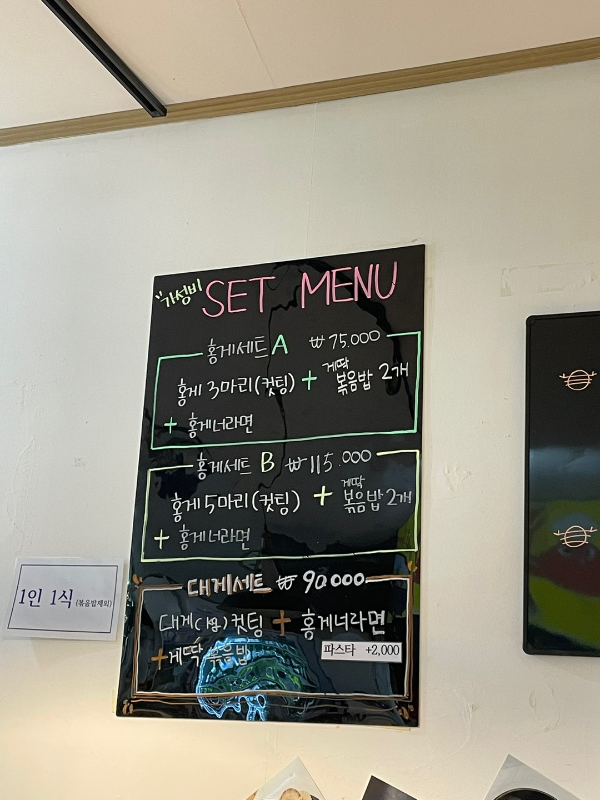 가성비 SET MENU
홍게세트 A ₩ 75.000
홍게 3마리(컷팅) + 게딱 볶음밥 2개
+ 홍게너라면
홍게세트 B ₩ 115.000
홍게 5마리(컷팅) + 게딱 볶음밥 2개
+ 홍게너라면
대게세트 ₩ 90.000
대게( ) 컷팅 + 홍게너라면
+ 게딱 볶음밥
파스타 +2,000
1인 1식 (볶음밥제외)